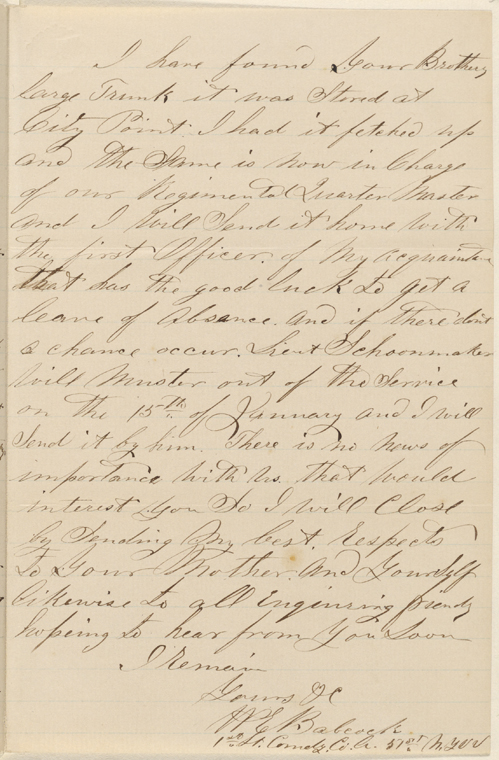 I have found Your Brothers
large Trunk it was Stored at
City Point. I had it fetched up
and the Same is now in Charge
of our Regimental Quarter Master
and I Will Send it home with
the first Officer. of My acquaintance
that has the good luck to get a
leave of absence. and if there dont
a chance occur. Lieut Schoonmaker
Will Muster out of the Service
on the 15th of January and I will
Send it by him. There is no News of
importance With us that would
interest you So I will Close
by Sending My best. Respects
to Your Mother. And Yourself
likewise to all Enquiring friends
hopeing to hear from You Soon
I Remain
Yours &C
W E Babcock
1st Lt. Comdg. Co. A. 51st N.Y.V.V